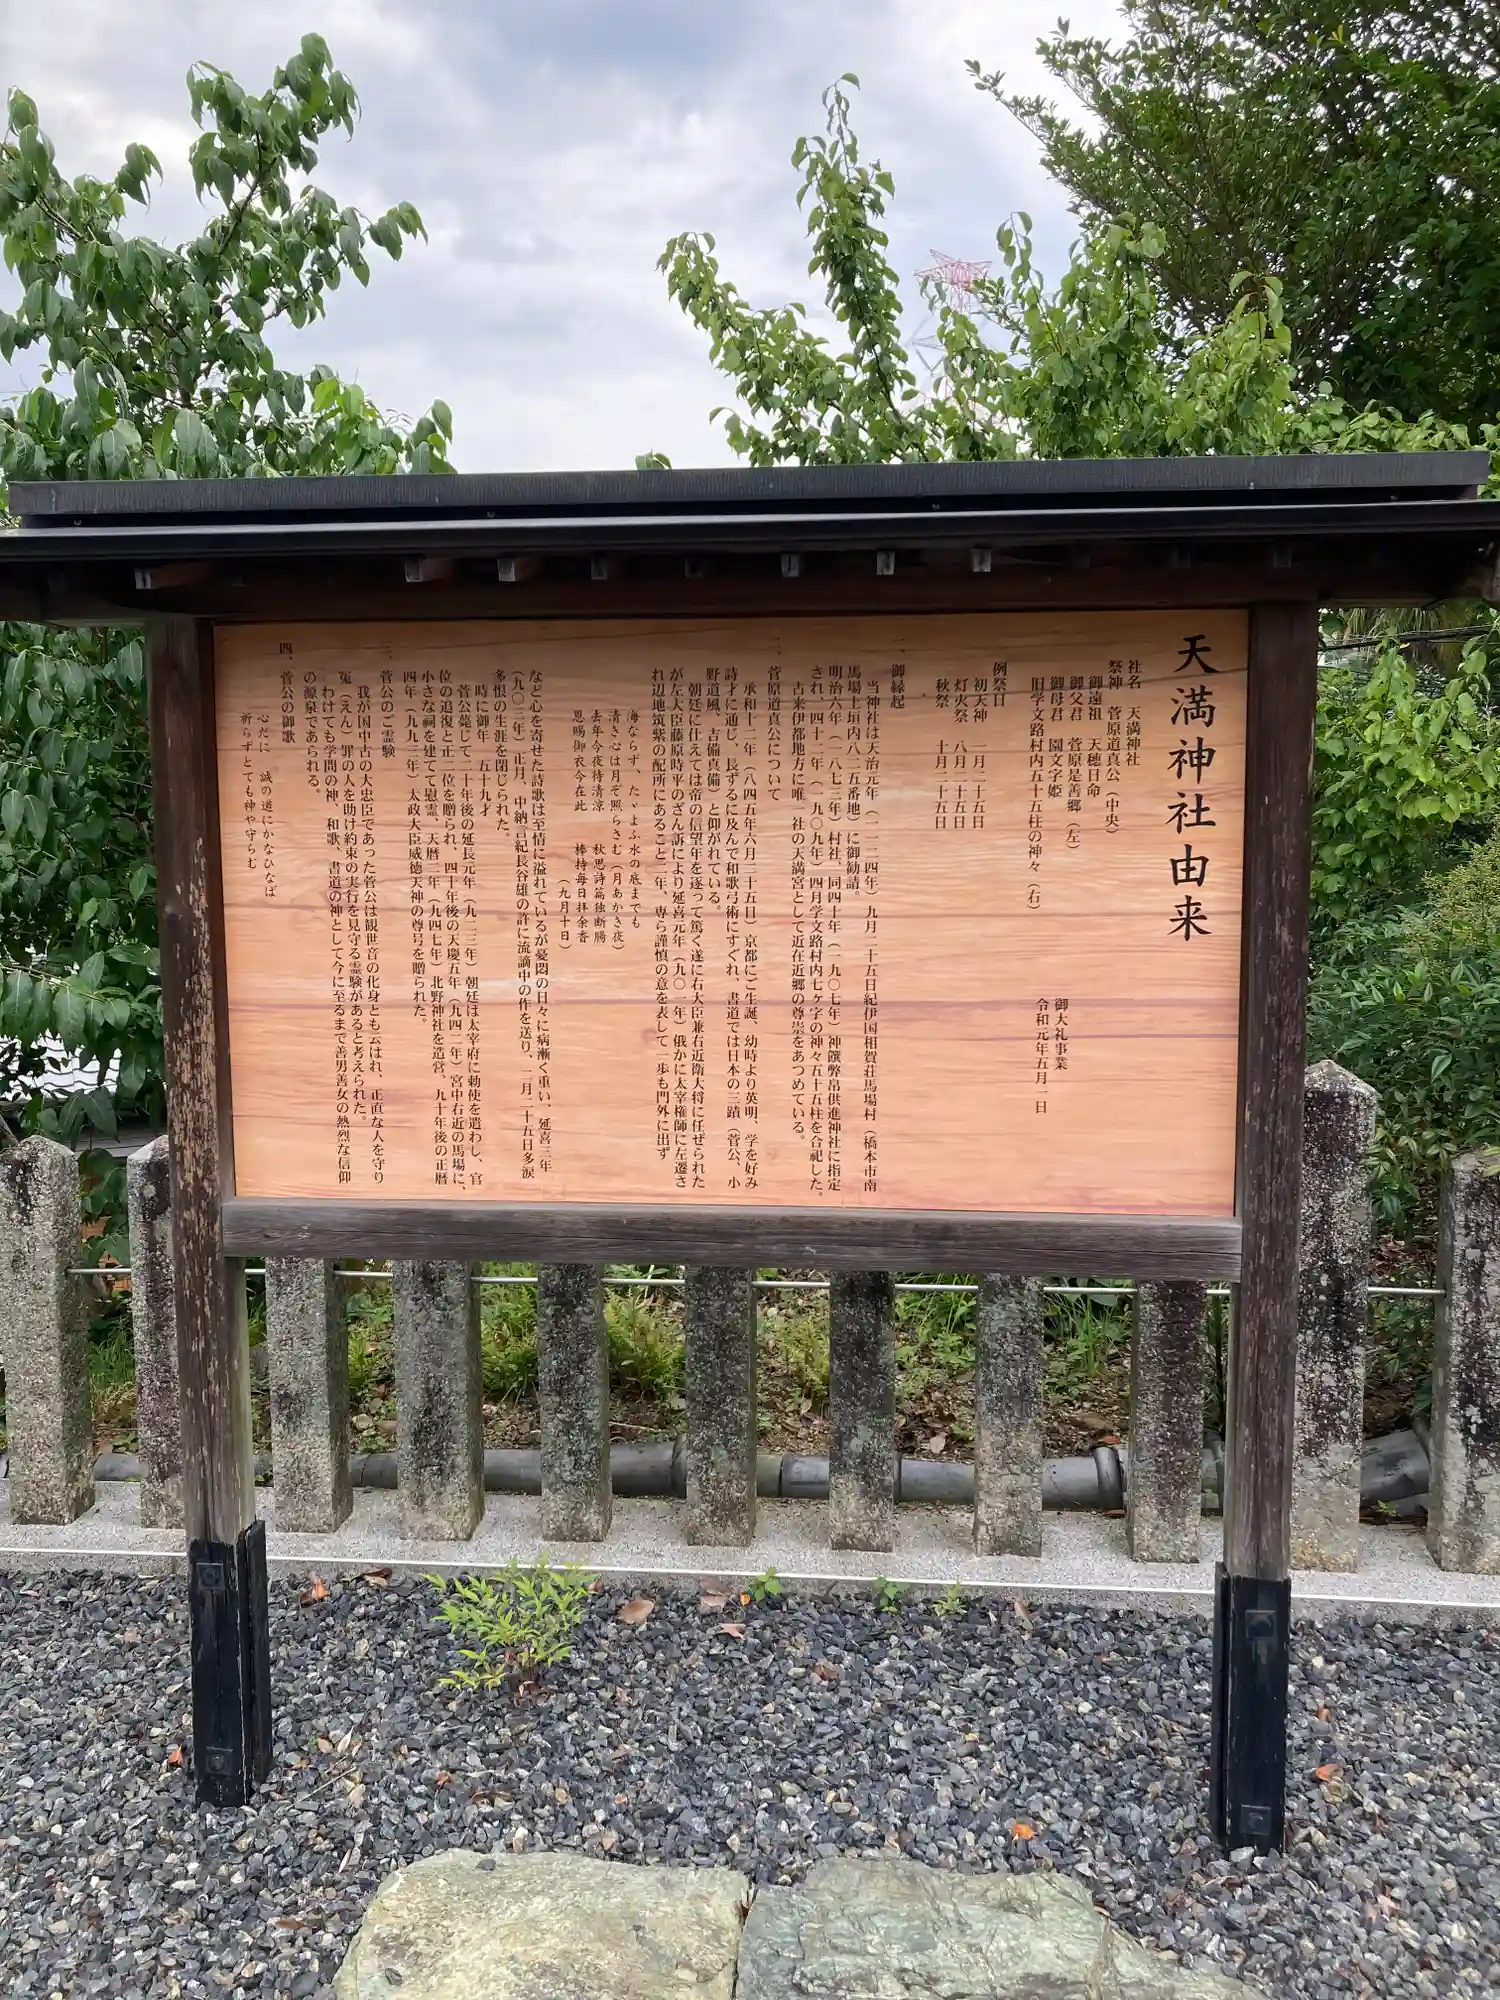 天満神社由来
社名　天満神社
祭神　菅原道真公（中央）
御遠祖　天穂日命
御父君　菅原是善郷（左）
御母君　園文字姫
旧学文路村内五十五柱の神々（右）
御大礼事業
令和元年五月一日
例祭日
初天神　一月二十五日
灯火祭　八月二十五日
秋祭　十月二十五日
一、御縁起
当神社は天治元年（一一二四年）九月二十五日紀伊国相賀荘馬場村（橋本市南
馬場土垣内八二五番地）に御勧請。
明治六年（一八七三年）村社、同四十年（一九〇七年）神饌幣帛供進神社に指定
され、四十二年（一九〇九年）四月学文路村内七ヶ字の神々五十五柱を合祀した。
古来伊都地方に唯一社の天満宮として近在近郷の尊崇をあつめている。
二、菅原道真公について
承和十二年（八四五年六月二十五日）京都にご生誕、幼時より英明、学を好み
詩才に通じ、長ずるに及んで和歌弓術にすぐれ、書道では日本の三蹟（菅公、小
野道風、吉備真備）と仰がれている。
朝廷に仕えては帝の信望年を逐って篤く遂に右大臣兼右近衛大将に任ぜられた
が左大臣藤原時平のざん訴により延喜元年（九〇一年）俄かに太宰権師に左遷さ
れ辺地筑紫の配所にあること二年、専ら謹慎の意を表して一歩も門外に出ず
海ならず、たゞよふ水の底までも
清き心は月ぞ照らさむ（月あかき夜）
去年今夜待清涼　秋思詩篇独断腸
恩賜御衣今在此　棒持毎日拝余香
（九月十日）
など心を寄せた詩歌は至情に溢れているが憂悶の日々に病漸く重い、延喜三年
（九〇三年）正月、中納言紀長谷雄の許に流謫中の作を送り、二月二十五日多涙
多恨の生涯を閉じられた。
時に御年　五十九才
菅公薨じて二十年後の延長元年（九二三年）朝廷は太宰府に勅使を遣わし、官
位の追復と正二位を贈られ、四十年後の天慶五年（九四二年）宮中右近の馬場に、
小さな祠を建てて慰霊、天暦二年（九四七年）北野神社を造営、九十年後の正暦
四年（九九三年）太政大臣威徳天神の尊号を贈られた。
三、菅公のご霊験
我が国中古の大忠臣であった菅公は観世音の化身とも云はれ、正直な人を守り
冤（えん）罪の人を助け約束の実行を見守る霊験があると考えられた。
わけても学問の神、和歌、書道の神として今に至るまで善男善女の熱烈な信仰
の源泉であられる。
四、菅公の御歌
心だに　誠の道にかなひなば
祈らずとても神や守らむ